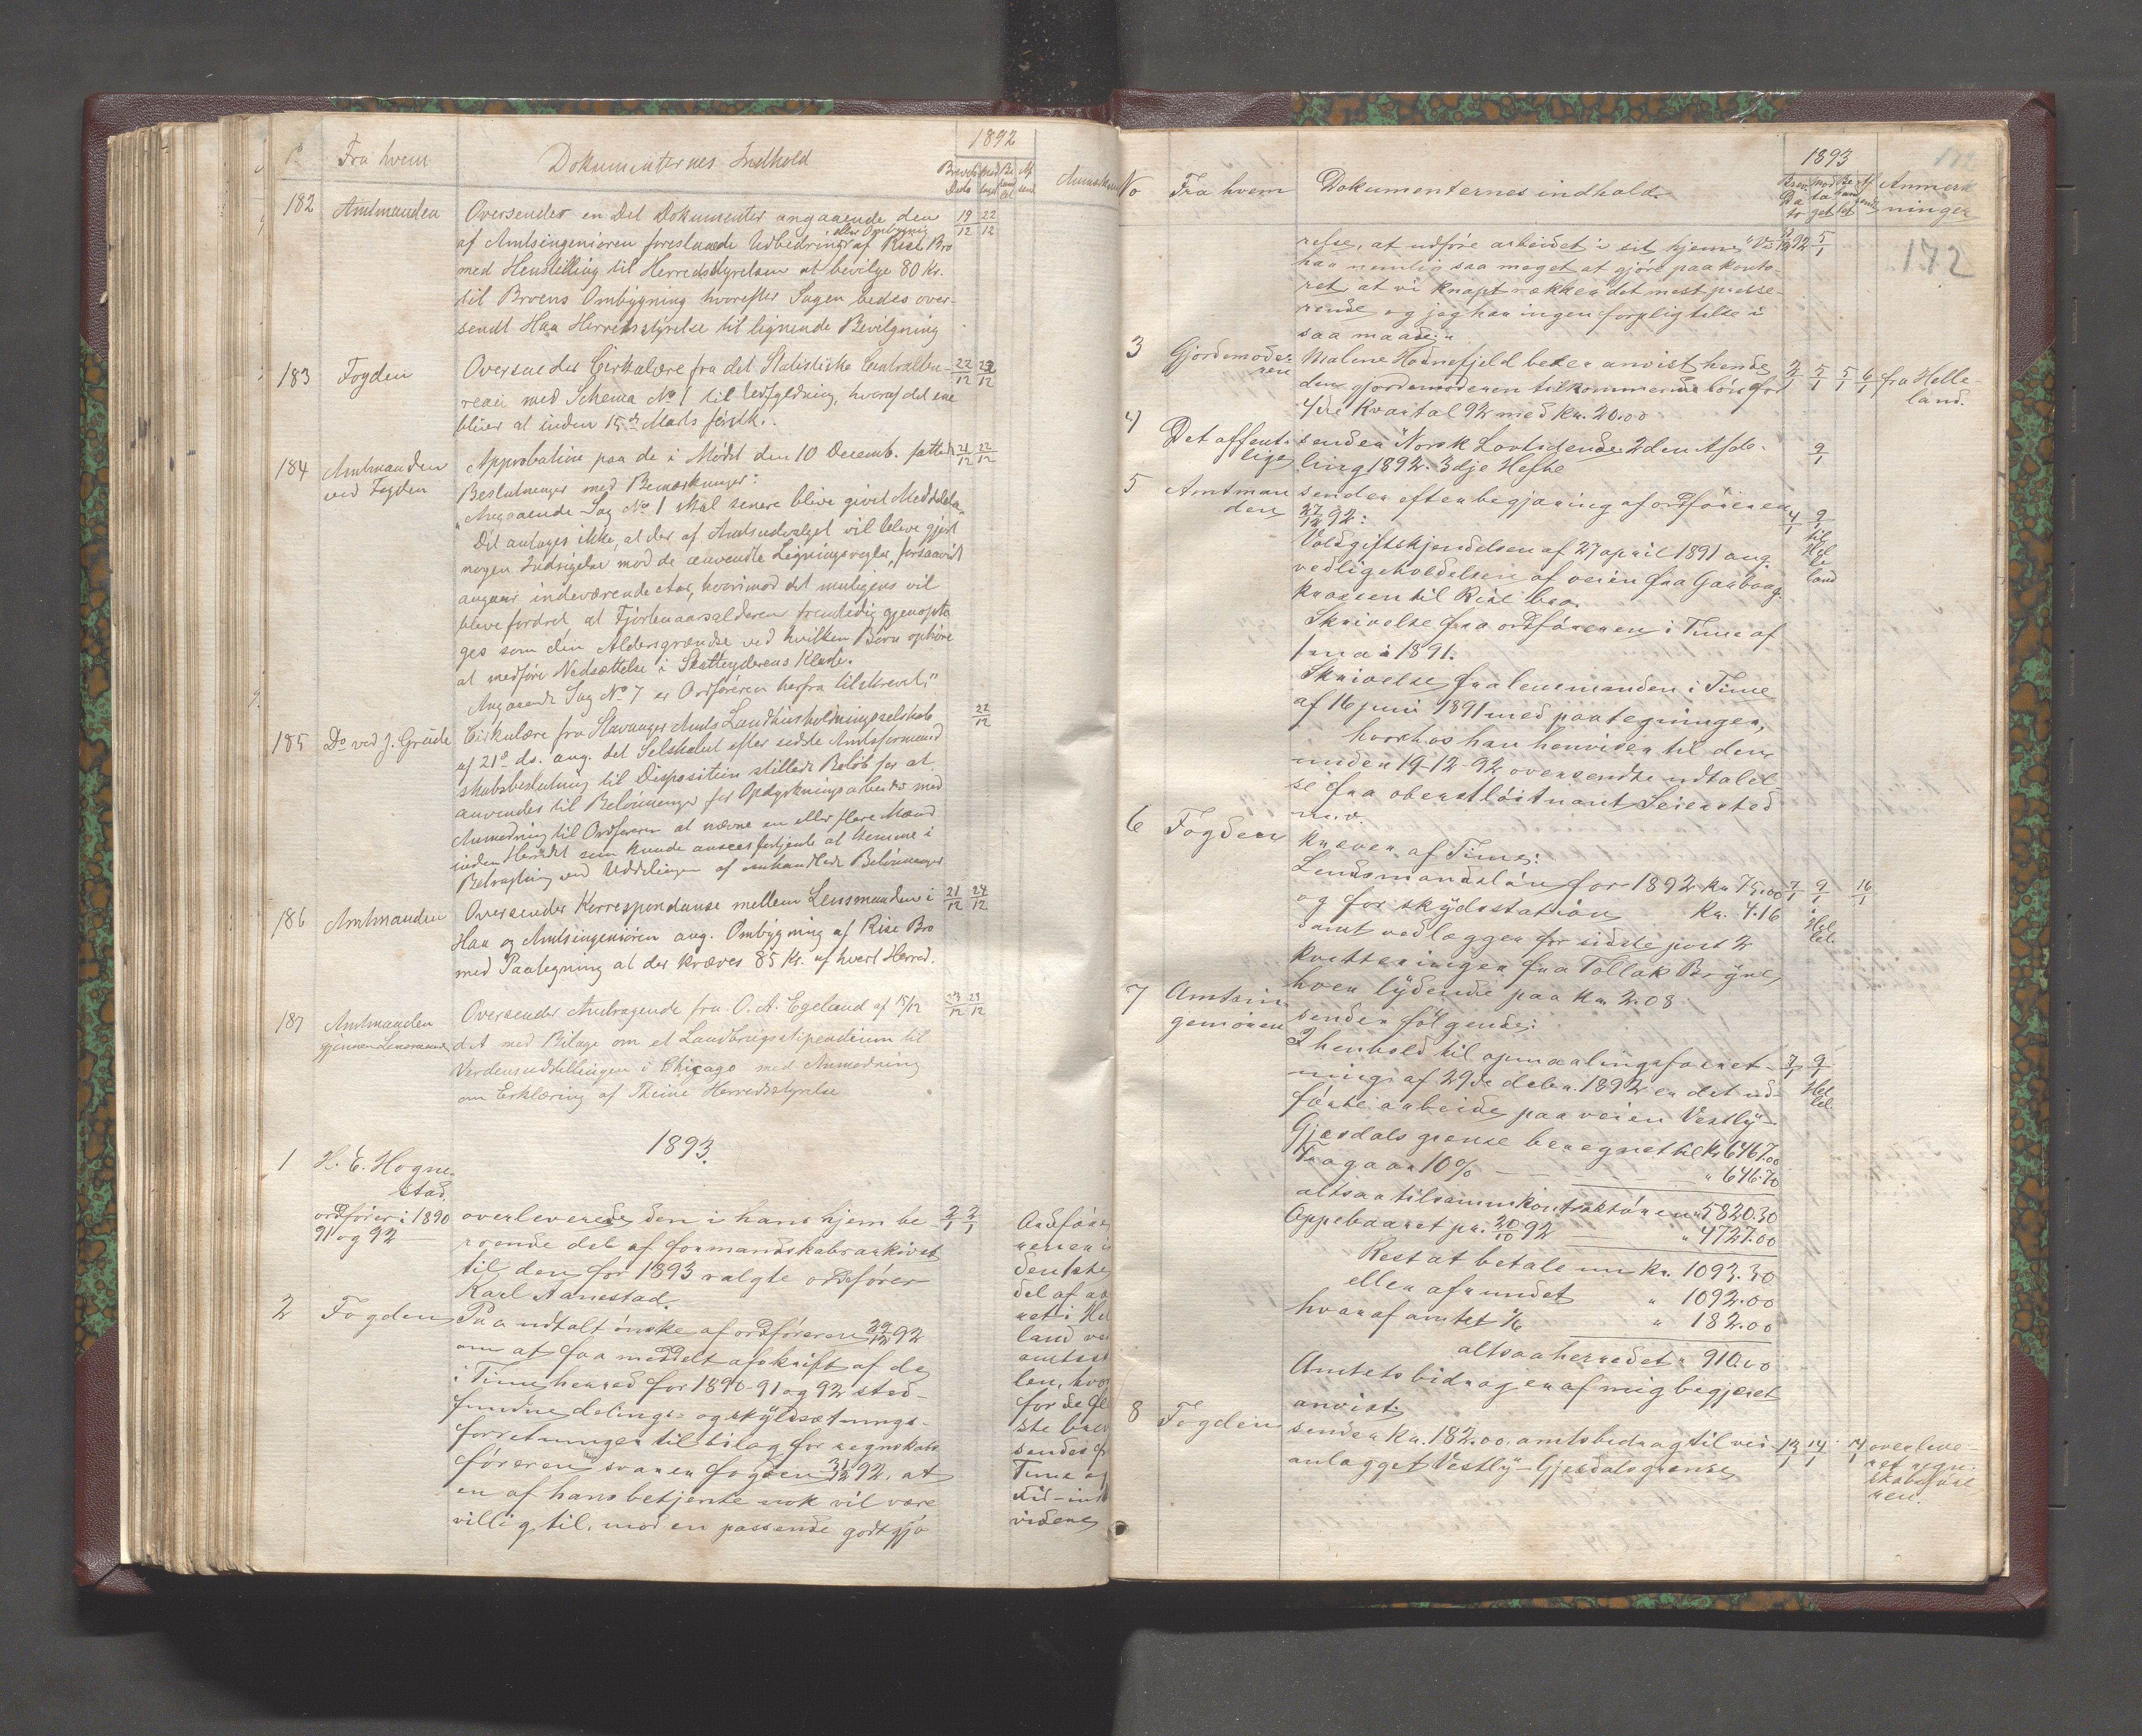 1892
Fra hvem
Dokumenternes Indhold
182 Amtmanden Oversender en Del Dokumenter angaaende den 19/12 22/12
eller Ombygning
af Amtsingeniøren foreslaaede Udbedring af Rise Bro
med Henstilling til Herredsstyrelsen at bevilge 80 Kr.
til Broens Ombygning hvorefter Sagen bedes over-
sendt Haa Herredsstyrelse til lignende Bevilgning
183 Fogden Oversender Cirkulære fra det Statistiske Centralbu- 22/12 23/12
reau med Schema No 1 til Udfyldning, hvoraf det ene
bliver at inden 15de Marts førstk.
184 Amtmanden ved Fogden Approbation paa de i Mødet den 10 Decemb. fattede 21/12 22/12
Beslutninger med Bemærkninger:
"Angaaende Sag No 1 skal senere blive givet Meddelelse.
Det antages ikke, at der af Amtsudvalget vil bleve gjort
nogen Indsigelse mod de anvendte Ligningsregler, forsaavidt
angaar indeværende Aar, hvorimod det muligens vil
bleve fordret at Fjortenaarsalderen fremtidig gjenopta
ges som den Aldersgrændse ved hvilken Børn ophøre
at medføre Nedsættelse i Skatteyderens Klasse.
Angaaende Sag No 7 er Ordføreren herfra tilskrevet,"
185 Do ved J. Grude Cirkulære fra Stavanger Amts Landhusholdningsselskab 22/12
af 21de ds. ang. det Selskabet efter sidste Amtsformand
skabsbeslutning til Disposition stillede Beløb for at
anvendes til Belønninger for Opdyrkningsarbeider med
Anmodning til Ordføreren at nævne en eller flere Mænd
inden Herredet som kunde ansees fortjente at komme i
Betragtning ved Uddelingen af omhandlede Belønninger
186 Amtmanden Oversender Korrespondanse mellem Lensmanden i 21/12 24/12
Haa og Amtsingeniøren ang. Ombygning af Rise Bro
med Paategning at der kræves 85 Kr. af hvert Herred.
187 Amtmanden gjennem Lensmanden Oversender Andragende fra O. A. Egeland af 15/12 23/12 29/12
d. A. med Bilage om et Landbrugsstipendium til
Verdensudstillingen i Chicago med Anmodning
om Erklæring af Thime Herredsstyrelse
1893.
1 H. E. Hogne-
stad,
ordfører i 1890 overleverede den i hans hjem be- 2/1 2/1
91 og 92 roende del af formandskabsarkivet
til den for 1893 valgte ordfører
Karl Aanestad.
2 Fogden Paa udtalt ønske af ordføreren 29/12 92
om at faa meddelt afskrift af de
i Time herred for 1890-91 og 92 sted-
fundne delings- og skyldsætnings-
forretninger til bilag for regnskabs
føreren svarer fogden 31/12 92, at
en af hans betjente nok vil være
villig til, mod en passende godtgjø
Ordføre
denste
del af
ret i Hel
land
amtsst
len, hvor
for de fle
ste brev
sendes
Time og
did-ind
videre
1893
172
No Fra hvem Dokumenternes indhold. Anmærk
ninger
relse, at udføre arbeidet i sit hjem. "Vi 5/1
har nemlig saa meget at gjøre paa konto-
ret at vi knapt rækker det mest presse-
rende og jeg har ingen forpligtelse i
saa maade."
3 Gjordemode- Malene Hadnefjeld beder anvist hende 2/1 5/1 5/1 6/1 fra Helle-
ren den gjordemoderen tilkommende løn for land.
4de kvartal 92 med kr. 20.00
4 Det offent- sender "Norsk Lovtidende" 2den Afde- 9/1
lige ling 1892. 3dje Hefte
5 Amtman sender efter begjæring af ordføreren 4/1 9/1
den 27/12 92: til
Voldgiftskjendelsen af 27 april 1891 ang. Hel
vedligeholdelsen af veien fra Garborg- le
krossen til Rise bro. land
Skrivelse fra ordføreren i Time af
1 mai 1891.
Skrivelse fra lensmanden i Time
af 16 juni 1891 med paategninger,
hvorhos han henviser til den
under 19-12-92 oversendte udtalel
se fra oberstløitnant Seiersted
m.v.
6 Fogden kræver af Time:
Lensmandsløn for 1892 kr 75.00 7/1 9/1 16/1
og for skydsstation kr. 4.16
samt vedlægger for sidste post 2 Hel
kvitteringer fra Tollak Bryne, lel.
hver lydende paa kr 2.08
7 Amtsin- sender følgende:
geniøren I henhold til opmaalingsforret- 7/1 9/1
ning af 29de decbr. 1892 er det ud- Hel
førte arbeide paa veien Vestly- lel
Gjesdals grense beregnet til kr 6467.00
Fragaar 10% — — " 646.70
altsaa tilsamm kontraktøren " 5820.30
Oppebaaret pr. 20/10 92 " 4727.00
Rest at betale nu kr. 1093.30
eller afrundet " 1092.00
hvoraf amtet 1/6 " 182.00
altsaa herredet " 910.00
Amtets bidrag er af mig begjæret
anvist.
8 Fogden sender kr. 182.00 amtsbidrag til vei- 13/1 14/1 14/1 overleve-
anlægget Vestly-Gjesdalsgrense ret regn-
skabsføre
ren.